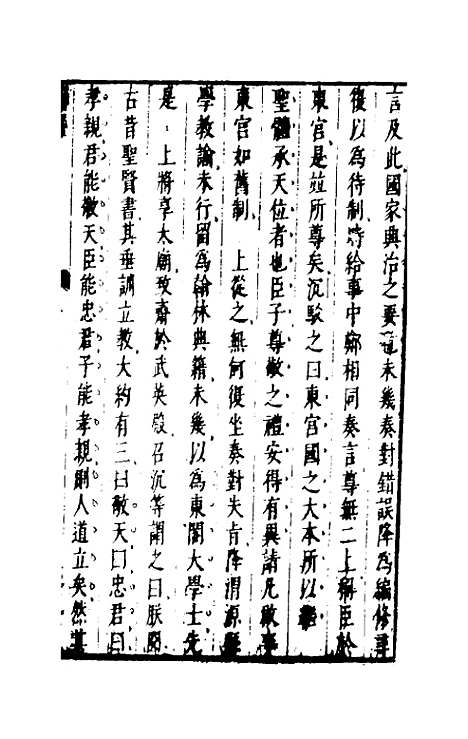 言及此國家興治之要道未幾奏對錯誤降為編修尋
復以為待制時給事中鄭相同奏言尊無二上稱臣於
東宮是並所尊矣沉駁之曰東宮國之大本所以繼
聖體承天位者也臣子尊敬之禮安得有異請凡啟事
東宮如舊制　上從之無何復坐奏對失旨降渭源縣
學教諭未行留為翰林典籍未幾以為東閣大學士先
是　上將享太廟致齋於武英殿召沉等謂之曰朕閱
古昔聖賢書其垂訓立教大約有三曰敬天曰忠君曰
孝親君能敬天臣能忠君子能孝親則人道立矣然其